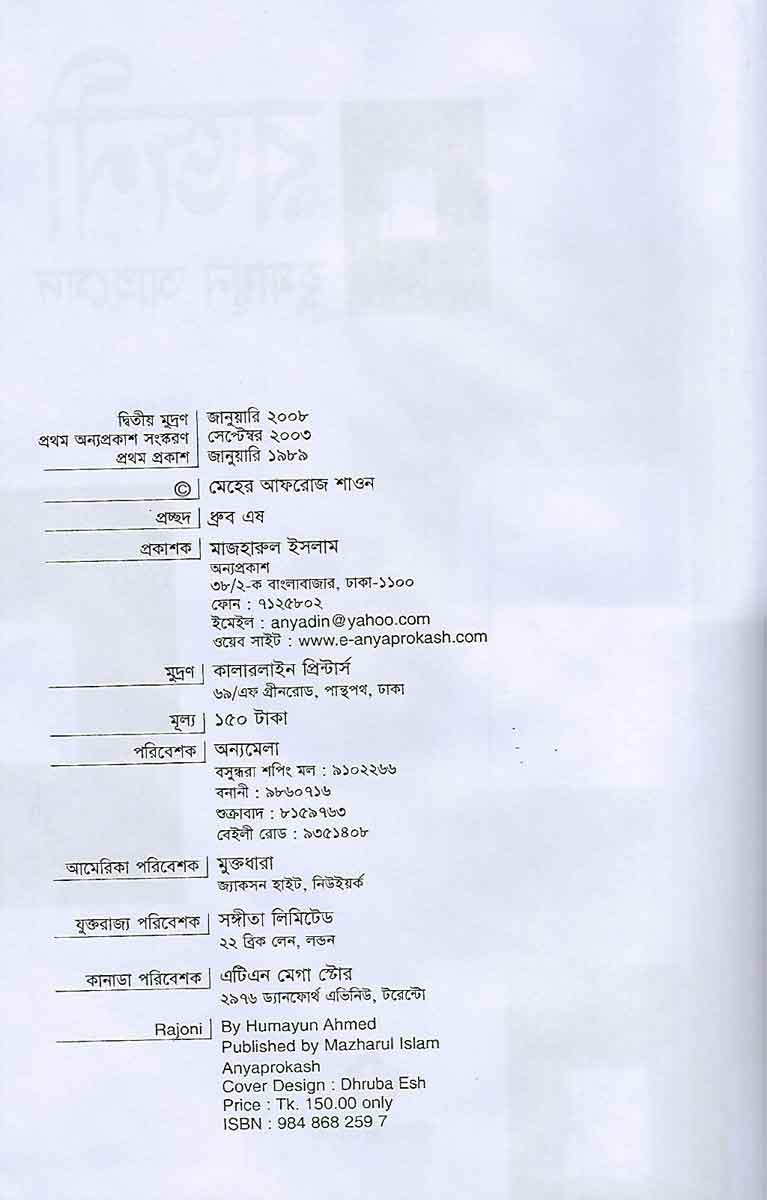 দ্বিতীয় মুদ্রণ জানুয়ারি ২০০৮
প্রথম অন্যপ্রকাশ সংস্করণ সেপ্টেম্বর ২০০৩
প্রথম প্রকাশ জানুয়ারি ১৯৮৯
© মেহের আফরোজ শাওন
প্রচ্ছদ ধ্রুব এষ
প্রকাশক মাজহারুল ইসলাম
অন্যপ্রকাশ
৩৮/২-ক বাংলাবাজার, ঢাকা-১১০০
ফোন : ৭১২৫৮০২
ইমেইল : anyadin@yahoo.com
ওয়েব সাইট : www.e-anyaprokash.com
মুদ্রণ কালারলাইন প্রিন্টার্স
৬৯/এফ গ্রীনরোড, পান্থপথ, ঢাকা
মূল্য ১৫০ টাকা
পরিবেশক অন্যমেলা
বসুন্ধরা শপিং মল : ৯১০২২৬৬
বনানী : ৯৮৬০৭১৬
শুক্রাবাদ : ৮১৫৯৭৬৩
বেইলী রোড : ৯৩৫১৪০৮
আমেরিকা পরিবেশক মুক্তধারা
জ্যাকসন হাইট, নিউইয়র্ক
যুক্তরাজ্য পরিবেশক সঙ্গীতা লিমিটেড
২২ ব্রিক লেন, লন্ডন
কানাডা পরিবেশক এটিএন মেগা স্টোর
২৯৭৬ ড্যানফোর্থ এভিনিউ, টরেন্টো
Rajoni By Humayun Ahmed
Published by Mazharul Islam
Anyaprokash
Cover Design : Dhruba Esh
Price : Tk. 150.00 only
ISBN : 984 868 259 7